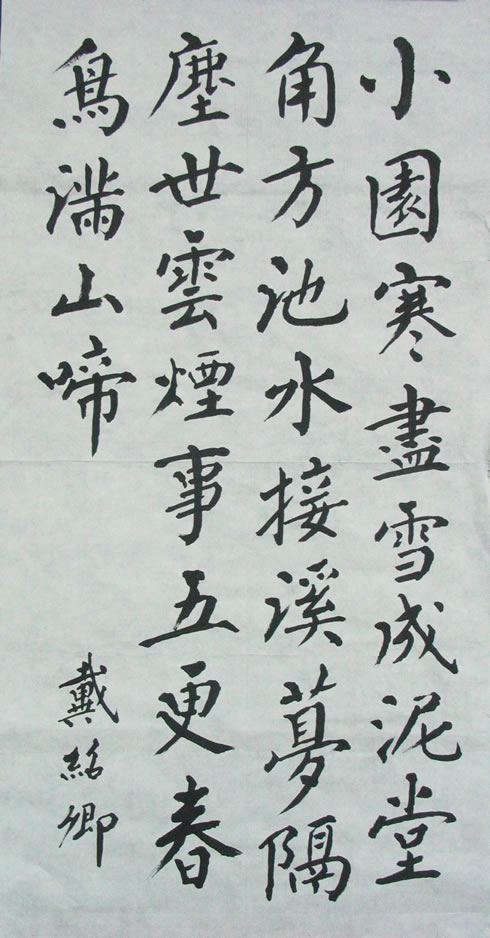 小園寒盡雪成泥堂
角方池水接溪夢隔
塵世雲煙事五更春
鳥滿山啼
戴紹卿